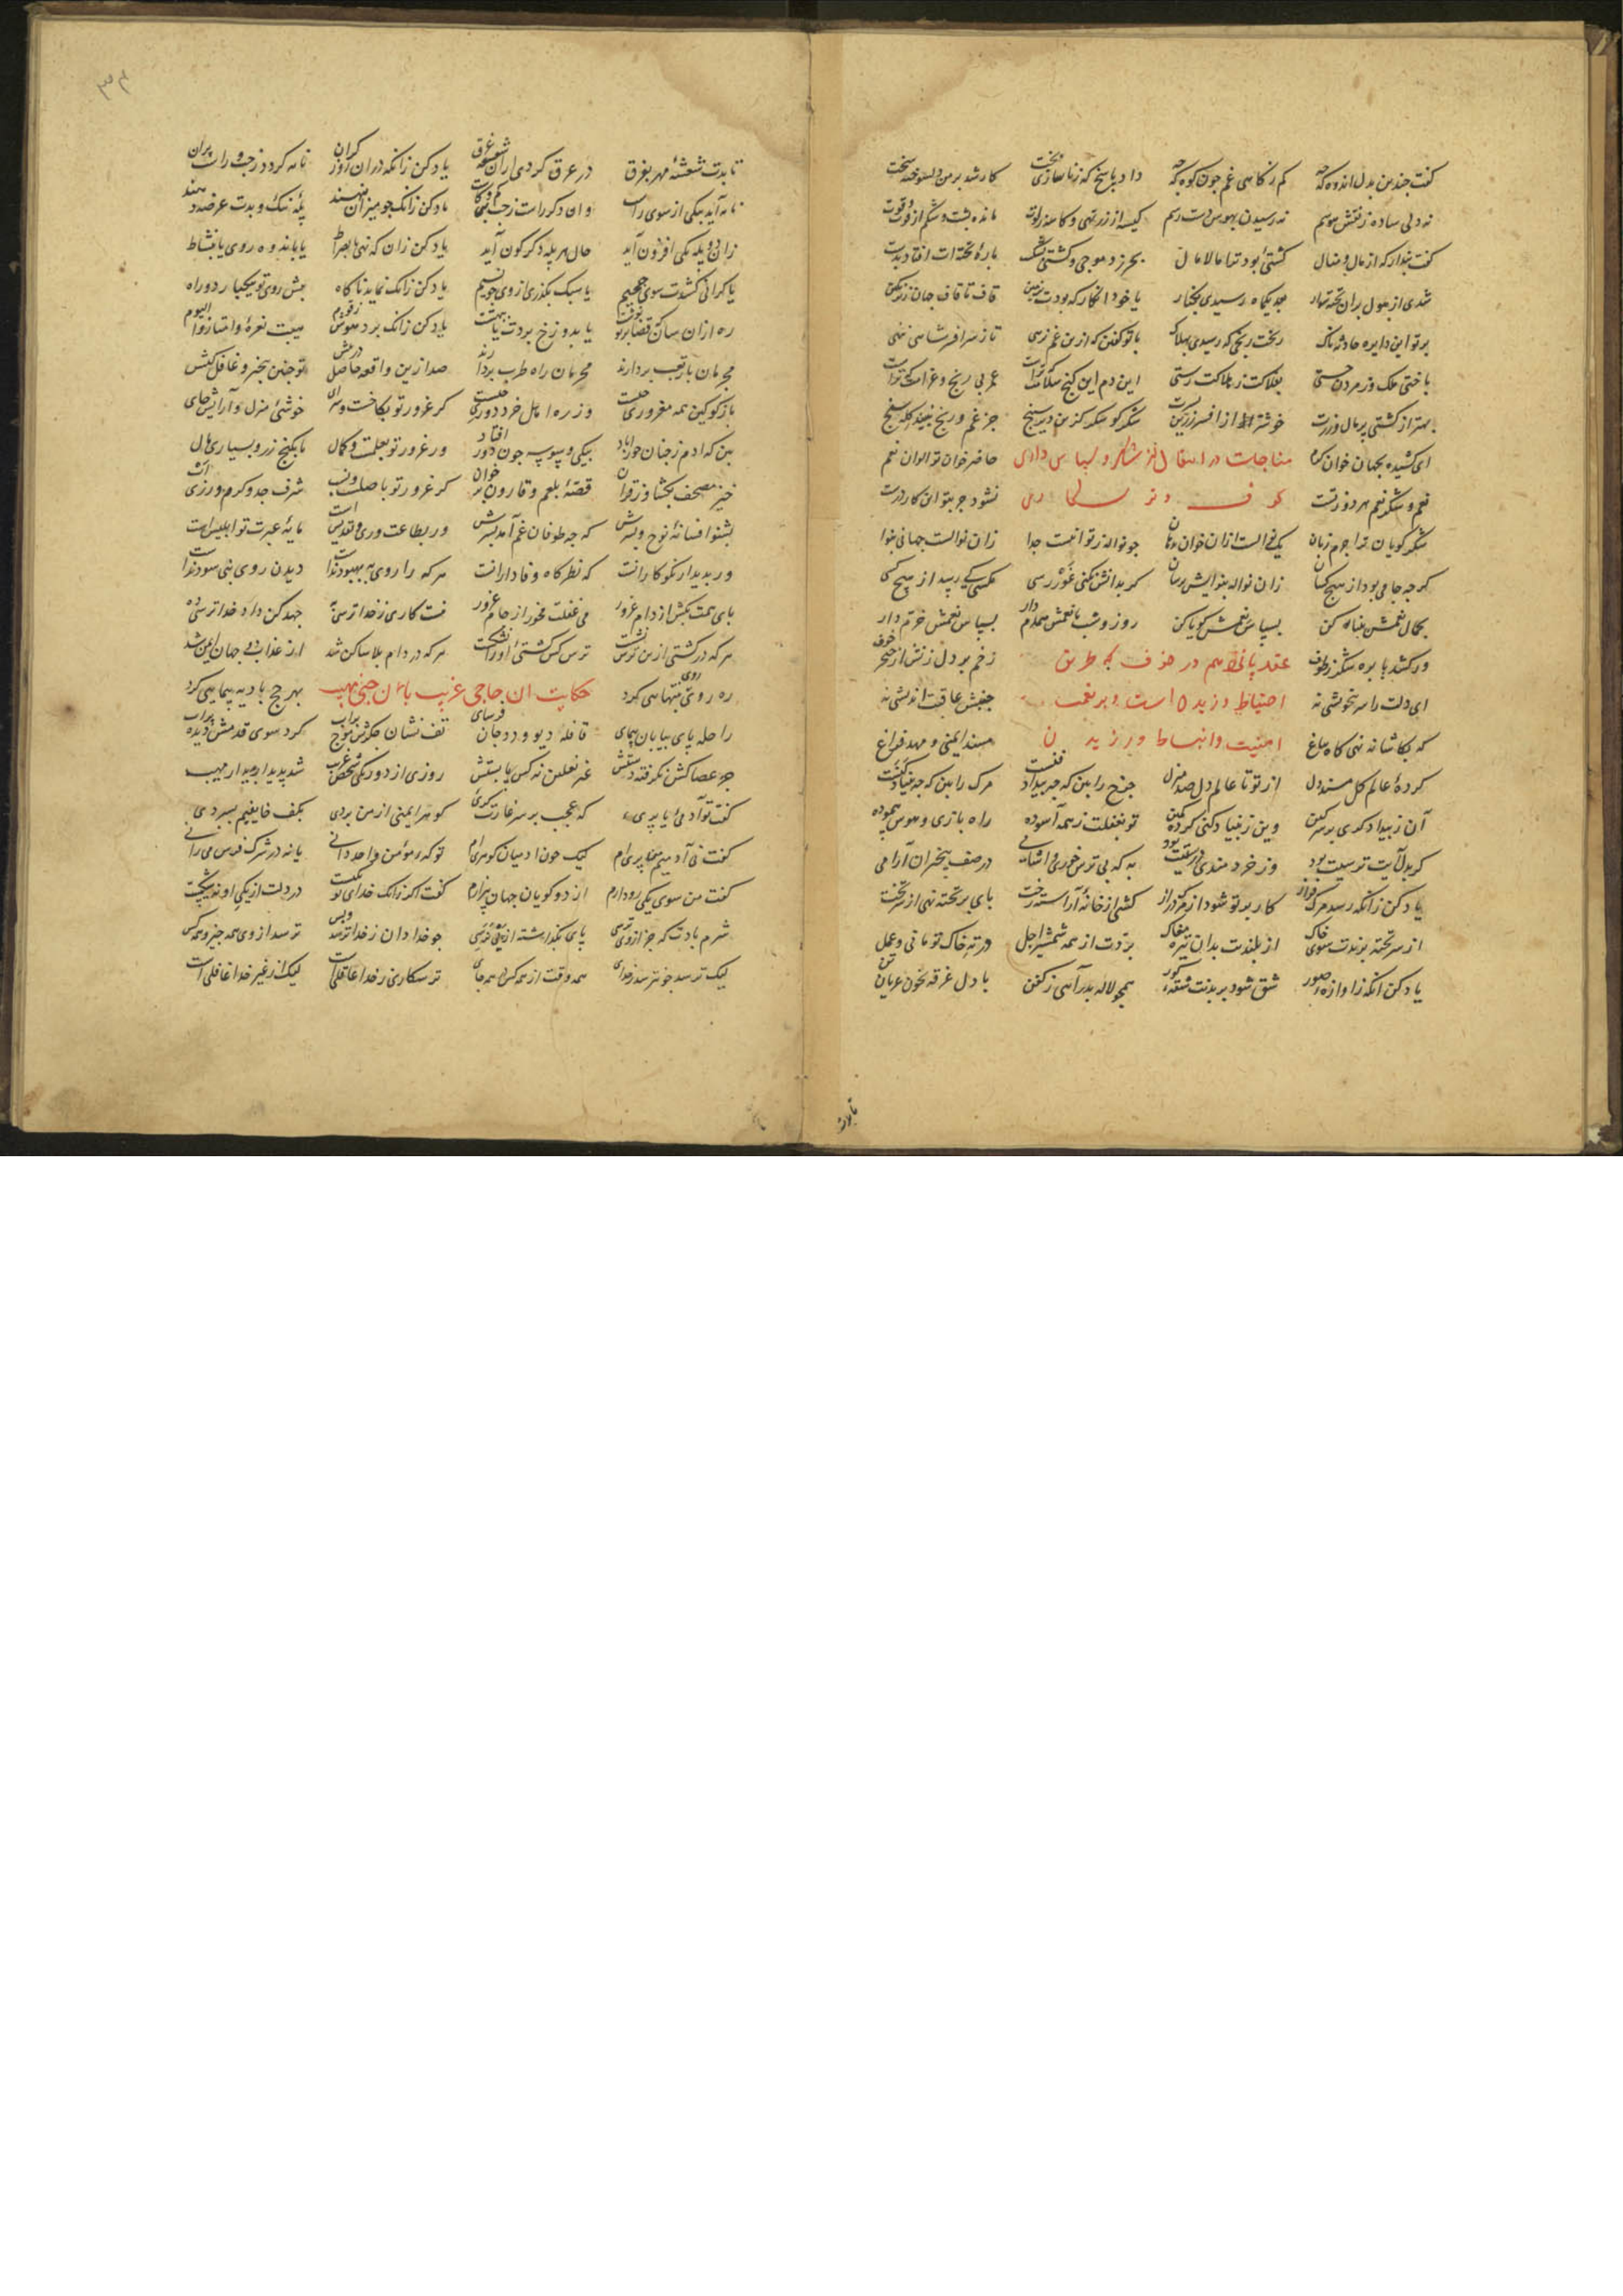 گفت چندین بدل اندوه که چه کم ز کاهی غم چون کوه که چه داد پاسخ که ز ناسازی بخت کار شد بر من دلسوخته سخت
نه دلی ساده ز نقش هوسم نه رسیدن بهوس دست رسم کیسه از زر تهی و کاسه ز لوت مانده پشت و شکم از قوت و قوت
گفت پندار که از مال و منال کشتئی بود ترا مالامال بحر زد موجی و کشتی بشکست پارهٔ تخته‌ات افتاد بدست
شدی از هول بران تخته سوار بعد یکماه رسیدی بکنار یا خود انگار که بودت بزمین قاف تا قاف جهان زیر نگین
بر تو این دایره حادثه ناک ریخت رنجی که رسیدی بهلاک با تو گفتن که ازین غم نرهی تا ز سر افسر شاهی ننهی
باختی ملک وز مردن جستی بفلاکت ز هلاکت رستی این دم این گنج سلامت که تراست عمر بی رنج و غرامت که تراست
بهتر از کشتی پر مال و زرست خوشتر از افسر زرین کمرست شکر گو شکر کزین دیر سپنج جز غم و رنج نبیند گله سنج
ای کشیده بجهان خوان کرم مناجات در انتقال از شکر و سپاس داری حاضر خوان تو الوان نعم
نعم و شکر نعم هر دو ز تست نشود جز بتو این کار درست
شکر گویان ترا جرم زبان یک نوالست ازان خوان دهان چو نواله ز تو نیست جدا زان نوالست جهانی بنوا
گر چه جامی بود از هیچ کسان زان نواله بنوایش برسان گر بدانش نکنی غورّرسی مکسی کی رسد از هیچ کسی
بکمال نعمش بینا کن بسپاس نعمش گویا کن روز و شب با نعمش همدم دار بسپاس نعمش خرم دار
ور کشد پا بره شکر ز طوف عقد پانزدهم در خوف که طریق زخم بر دل زنش از خنجر خوف
ای دلت را سر بخویشی نه احتیاط ورزیدن است و بر نعمت جنبش عاقبت اندیشی نه
که بکاشانه نهی گاه بباغ امنیت و انبساط ورزیدن مسند ایمنی و مهد فراغ
کردهٔ عالم گل مسند دل از تو تا عالم دل صد منزل چرخ را بین که چه بیدادگرست مرگ را بین که چه بنیاد کنست
آن ز بیداد گری بر سر کین وین ز بنیاد کنی کرده کمین تو بغفلت ز همه آسوده راه بازی و هوس پیموده
گر بدل آیت ترسیت بود وز خردمندی درسیت بود به که بی ترس خوری و آشامی در صف بیخبران آرامی
یاد کن زانکه رسد مرگ فراز کار بر تو شود از مرگ دراز کشی از خانهٔ آراسته رخت پای بر تخته نهی از سر تخت
از سر تخته برندت سوی خاک از بلندیت بدان تیره مغاک بردت از همه شمشیر اجل در ته خاک تو مانی و عمل
یاد کن آنکه ز آوازه صور شق شود بر بدنت شقهٔ گور همچو لاله بدر آیی ز کفن با دل غرقه بخون عریان تن
تابدت شعشهٔ مهر بفرق در عرق گردی ازان شعشعه غرق یاد کن زانکه دران روز گران نامه گردد ز چپ و راست پران
نامه آید یکی از سوی راست وان دگر راست ز چپ بی کم و کاست یاد کن زانک چو میزان نهند پلّه نیک و بدت عرضه دهند
زان دو پله یکی افزون آید حال هر پله دگرگون آید یاد کن زان که نهی پا بصراط پا باندوه روی یا بنشاط
یا گرانی کشدت سوی جحیم یا سبک بگذری از وی چو نسیم یاد کن زانک نماید ناگاه پیش روی تو بیکبار دو راه
ره ازان سان که قضا بر تو نوشت یا بدوزخ بردت یا ببهشت
مجرمان بار تعب بردارند محرمان راه طرب بردارند صد ازین واقعه حاصل در پیش تو چنین بیخبر و غافل کیش
باز گو کین همه مغروری چیست وز ره اهل خرد دوری چیست گر غرور تو بکاخست و سرای خوشئ منزل و آرایش جای
بین که آدم ز جنان چون افتاد ور غرور تو بعلمست و کمال یا بگنج زر و بسیاری مال
خیز مصحف بگشا و ز قران قصّهٔ بلعم و قارون بر خوان گر غرور تو باصلست و نسب شرف جد و کرم ورزی اب
بشنو افسانهٔ نوح و پسرش که چه طوفان غم آمد بسرش ور بطاعت وری و تقدیس است مایهٔ عبرت تو ابلیس است
ور بدیدار نکوکارانست که نظرگاه وفادارانست هر که را روی به بهبود نداشت دیدن روی نبی سود نداشت
پای همت بکش از دام غرور می غفلت مخور از جام غرور نیست کاری ز خدا ترسی به جهد کن داد خدا ترسی ده
هر که در کشتی ازین ترس نشست ترس کس کشتئ او را نشکست هر که در دام بلا ساکن شد از عذاب دو جهان ایمن شد
ره روی روی بتنهایی کرد حکایت آن حاجی غریب با آن جنی مهیب بهر حج بادیه پیمایی کرد
راحله پای بیابان پیمای قافله دیو و دد جان فرسای تف نشان جگرش موج سراب گرد شوی قدمش دیدهٔ پر آب
جز عصا کس نگرفته دستش غیر نعلین نه کس پا بستش روزی از دور یکی شخص غریب شد پدیدار بدیدار مهیب
گفت تو آدمئی یا پریئی که عجب بر سر غارتگریئی گوهر ایمنی از من بردی بکف خایفیم بسپردی
گفت نی آدمیم پری‌ام لیک چون آدمیان گوهری‌ام تو که ز مؤمن واحد دانی یا نه در شرک فرس می رانی
گفت من سوی یکی رو دارم از دو گویان جهان بیزارم گفت اگر زانک خدای تو یکیست در دلت از یکی او نه شکیست
شرم بادت که جز از وی ترسی پای بگذاشته از پی ترسی چو خدا دان ز خدا ترسد و بس ترسد از وی همه چیز و همه کس
لیک ترسد چو نترسد ز خدای همه وقت از همه کس همه جای ترسکاری ز خدا عاقلی است لیک از غیر خدا غافلی است